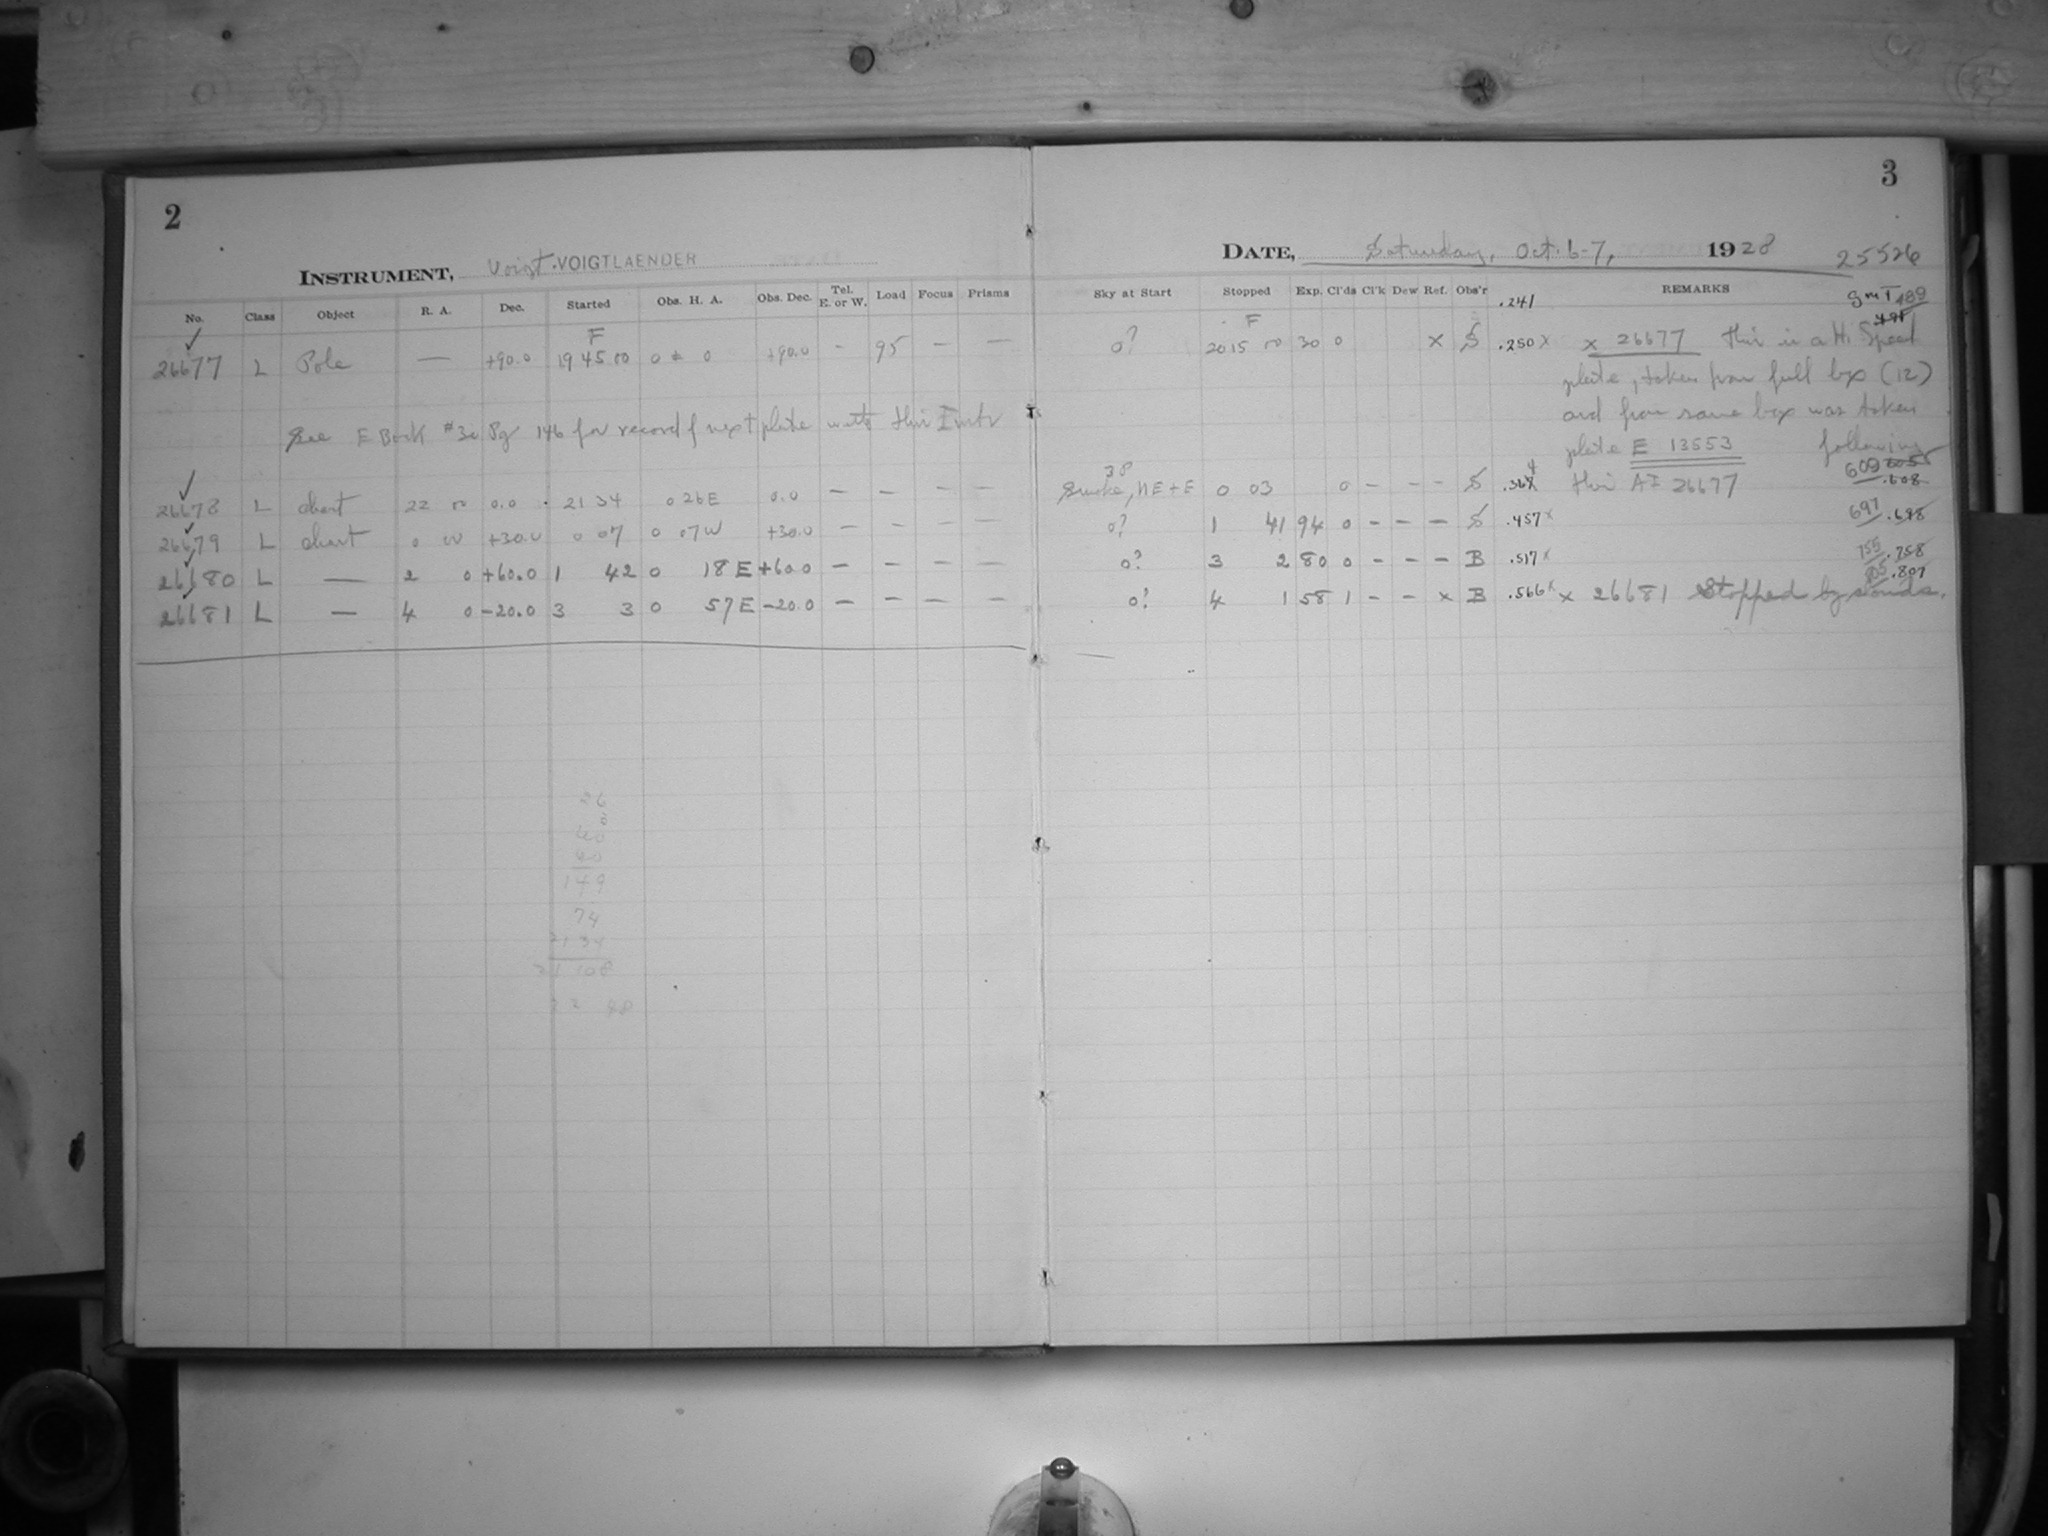 2
INSTRUMENT, Voigt. VOIGTLAENDER
No. Class Object R. A. Dec. Started Obs. H. A. Obs. Dec. Tel. E. or W. Load Focus Prisms
F
26677 L Pole — +90.0 19 45 00 0 ± 0 +90.0 - 95 — —
See E Book #30 Pg 146 for record of next plate with this Instr
26678 L chart 22 00 0.0 21 34 0 26E 0.0 — — — —
26679 L chart 0 00 +30.0 0 07 0 07W +30.0 — — — —
26680 L — 2 0 +60.0 1 42 0 18E +60.0 — — — —
26681 L — 4 0 -20.0 3 3 0 57E -20.0 — — — —
26
40
149
74
21 34
3
DATE, Saturday, Oct. 6-7, 1928 25526
Sky at Start Stopped Exp. Cl'ds Cl'k Dew Ref. Obs'r .241 REMARKS GMT 489
F
0? 20 15 00 30 0 x S .250 x x 26677 this is a Hi Speed
plate, taken from full box (12)
and from same box was taken
plate E 13553 following
38
Smoke, NE+E 0 03 0 - - - S this AI 26677 609 .608
0? 1 41 94 0 - - - S .457 x 697 .698
0? 3 2 80 0 - - - B .517 x 755 .758
0? 4 1 58 1 - - x B .566 x x 26681 Stopped by clouds. 805 .807